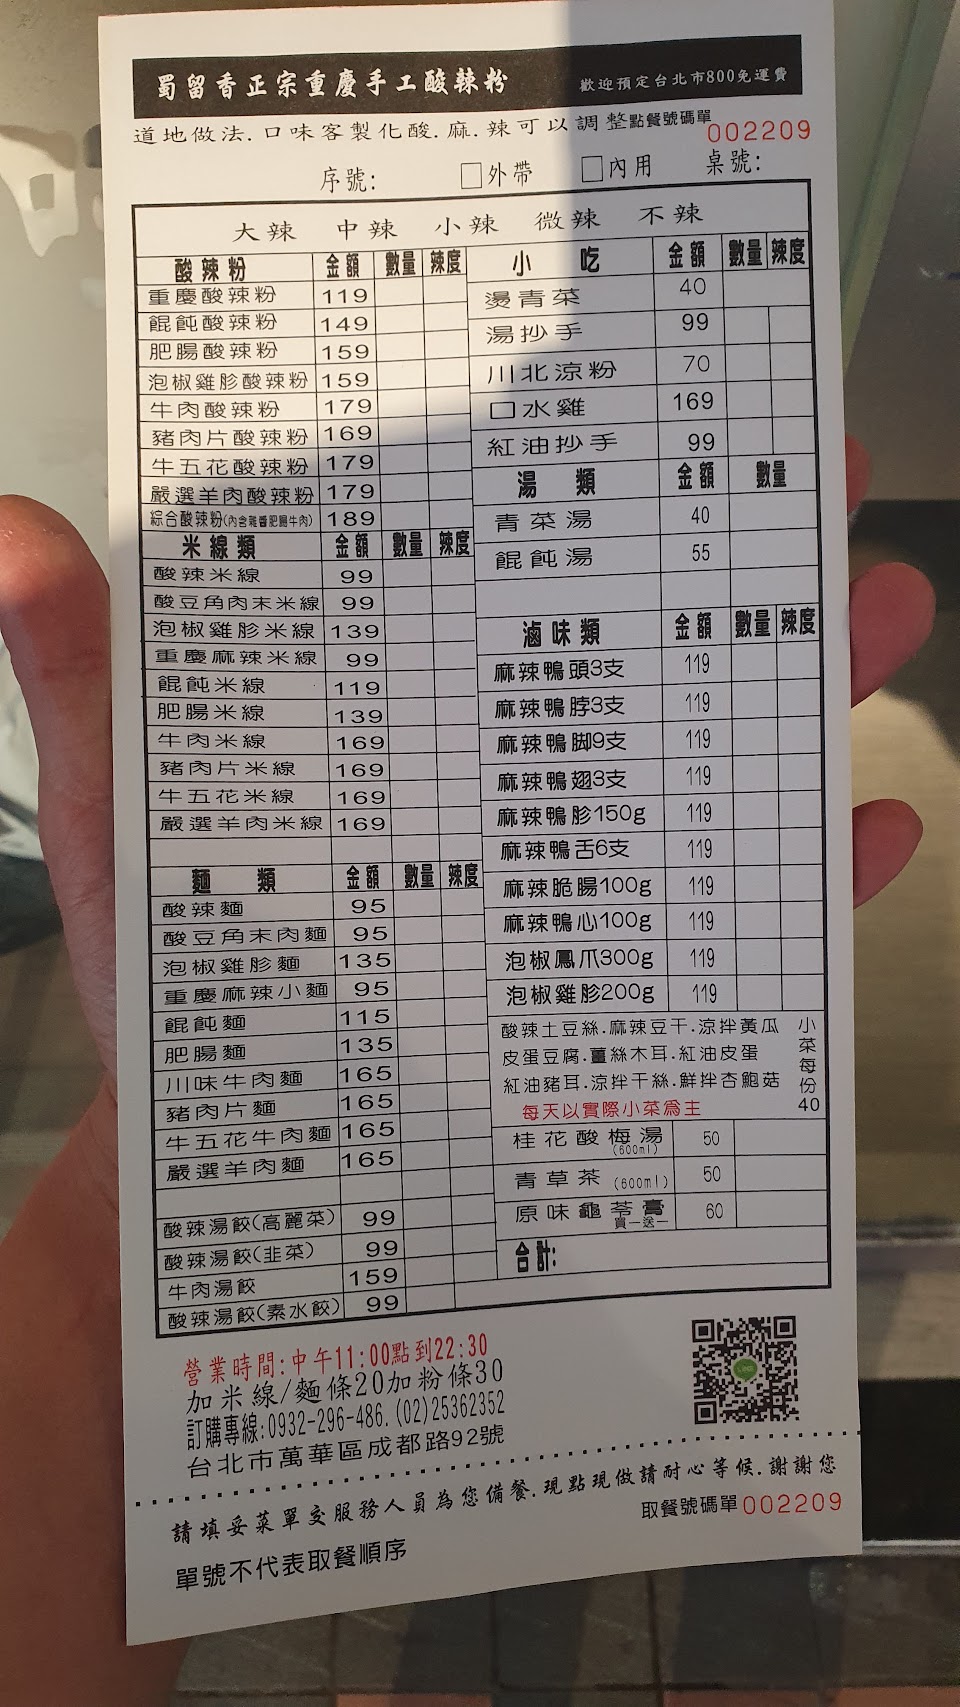 蜀留香正宗重慶手工酸辣粉 歡迎預定台北市800免運費
道地做法.口味客製化酸.麻.辣可以調整點餐號碼單002209
序號: □外帶 □內用 桌號:
大辣 中辣 小辣 微辣 不辣
酸辣粉 金額 數量 辣度
重慶酸辣粉 119
餛飩酸辣粉 149
肥腸酸辣粉 159
泡椒雞胗酸辣粉 159
牛肉酸辣粉 179
豬肉片酸辣粉 169
牛五花酸辣粉 179
嚴選羊肉酸辣粉 179
綜合酸辣粉(內含雞醬肥腸牛肉) 189
米線類 金額 數量 辣度
酸辣米線 99
酸豆角肉末米線 99
泡椒雞胗米線 139
重慶麻辣米線 99
餛飩米線 119
肥腸米線 139
牛肉米線 169
豬肉片米線 169
牛五花米線 169
嚴選羊肉米線 169
麵類 金額 數量 辣度
酸辣麵 95
酸豆角末肉麵 95
泡椒雞胗麵 135
重慶麻辣小麵 95
餛飩麵 115
肥腸麵 135
川味牛肉麵 165
豬肉片麵 165
牛五花牛肉麵 165
嚴選羊肉麵 165
酸辣湯餃(高麗菜) 99
酸辣湯餃(韭菜) 99
牛肉湯餃 159
酸辣湯餃(素水餃) 99
小吃 金額 數量 辣度
燙青菜 40
湯抄手 99
川北涼粉 70
口水雞 169
紅油抄手 99
湯類 金額 數量
青菜湯 40
餛飩湯 55
滷味類 金額 數量 辣度
麻辣鴨頭3支 119
麻辣鴨脖3支 119
麻辣鴨脚9支 119
麻辣鴨翅3支 119
麻辣鴨胗150g 119
麻辣鴨舌6支 119
麻辣脆腸100g 119
麻辣鴨心100g 119
泡椒鳳爪300g 119
泡椒雞胗200g 119
酸辣土豆絲.麻辣豆干.涼拌黃瓜
皮蛋豆腐.薑絲木耳.紅油皮蛋
紅油豬耳.涼拌干絲.鮮拌杏鮑菇
每天以實際小菜為主
小菜每份40
桂花酸梅湯(600ml) 50
青草茶(600ml) 50
原味龜苓膏 買一送一 60
合計:
營業時間:中午11:00點到22:30
加米線/麵條20加粉條30
訂購專線:0932-296-486.(02)25362352
台北市萬華區成都路92號
請填妥菜單交服務人員為您備餐.現點現做請耐心等候.謝謝您
取餐號碼單002209
單號不代表取餐順序